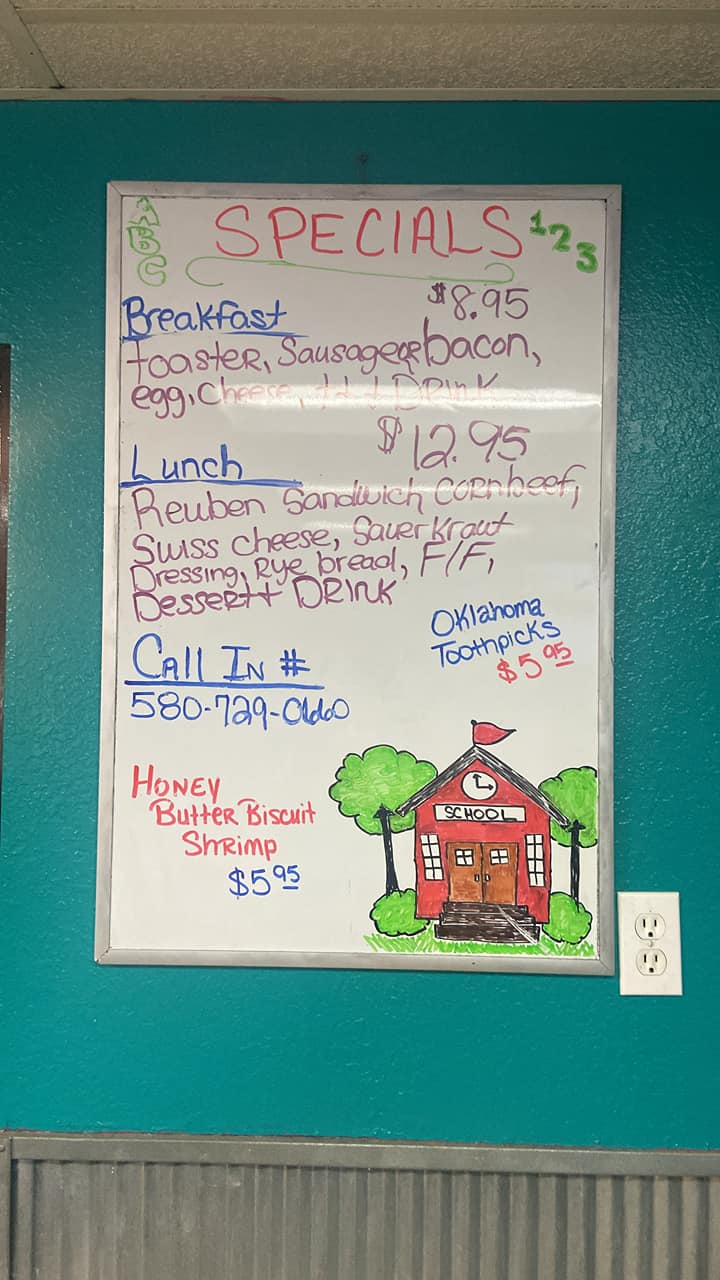 ABC
SPECIALS
123
Breakfast $8.95
toaster, Sausage or bacon,
egg, Cheese, ttt Drink
Lunch $12.95
Reuben Sandwich Cornbeef,
Swiss cheese, Sauerkraut
Dressing, Rye bread, F/F,
Dessert + DRINK
Oklahoma
Toothpicks
$5 95
CALL IN #
580-729-0660
HONEY
Butter Biscuit
Shrimp
$5 95
SCHOOL